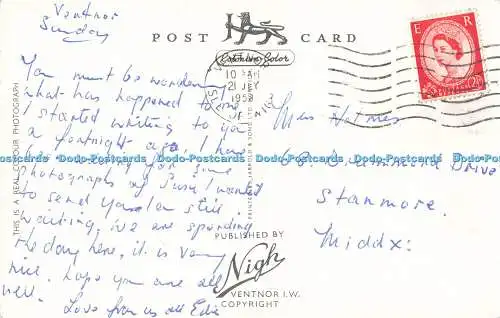 Ventnor
Sunday
POST CARD
Natural Color
E R
10 AM
21 JLY
1958
You must be wondering
what has happened to me
I started writing to you
a fortnight ago, I have
been waiting for some
photographs of Susie I wanted
to send you. I am still
waiting, we are spending
the day here, it is very
nice. hope you are all
well.
Love from us all Edie
Miss Holmes
68. Drummond Drive
Stanmore.
Middx:
THIS IS A REAL COLOUR PHOTOGRAPH
Dodo-Postcards Dodo-Postcards Dodo-Postcards Dodo-Postcards Dodo-Postcards Dodo-Postcards
PUBLISHED BY
Nigh
VENTNOR I.W.
COPYRIGHT